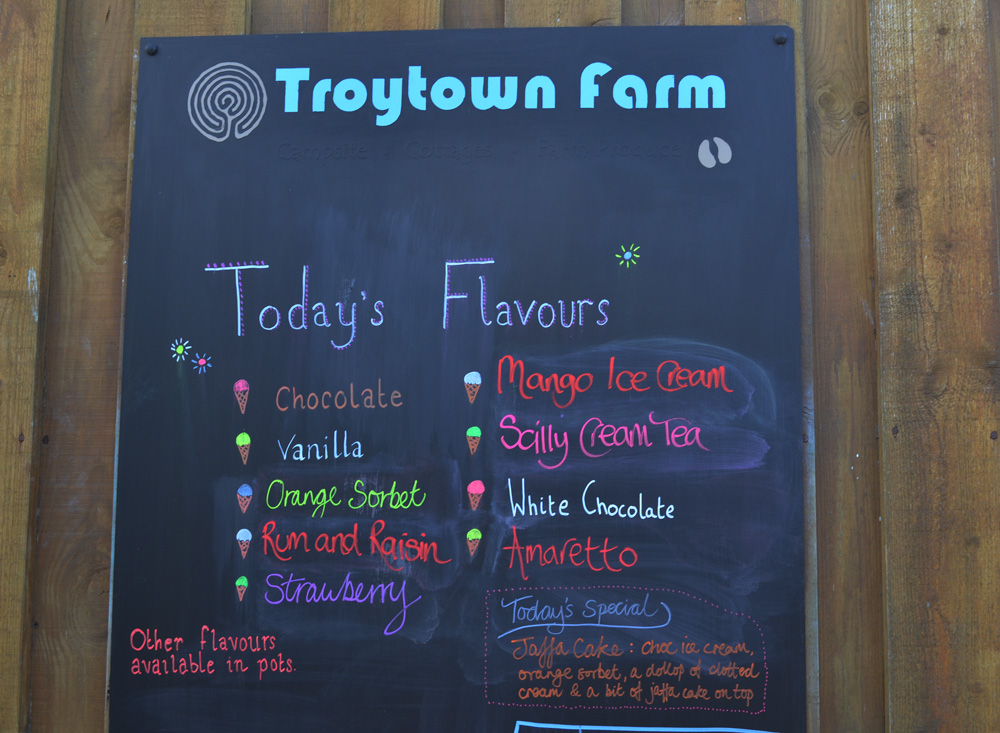 Troytown Farm
Campsite Cottages Farm Produce
Today's Flavours
Chocolate
Vanilla
Orange Sorbet
Rum and Raisin
Strawberry
Other flavours
available in pots.
Mango Ice Cream
Scilly Cream Tea
White Chocolate
Amaretto
Today's Special
Jaffa Cake : choc ice cream,
orange sorbet, a dollop of clotted
cream & a bit of jaffa cake on top